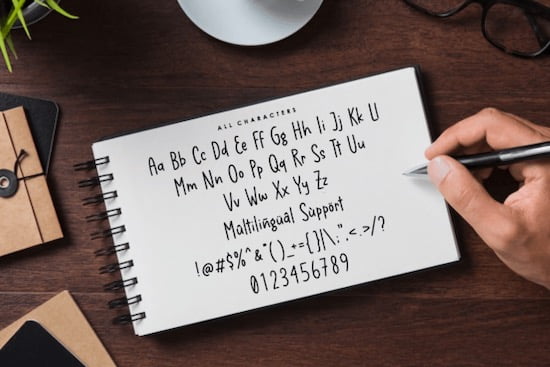 ALL CHARACTERS
Aa Bb Cc Dd Ee Ff Gg Hh Ii Jj Kk Ll
Mm Nn Oo Pp Qq Rr Ss Tt Uu
Vv Ww Xx Yy Zz
Multilingual Support
!@#$%^&*()_+={}|\;",<.>/?
0123456789